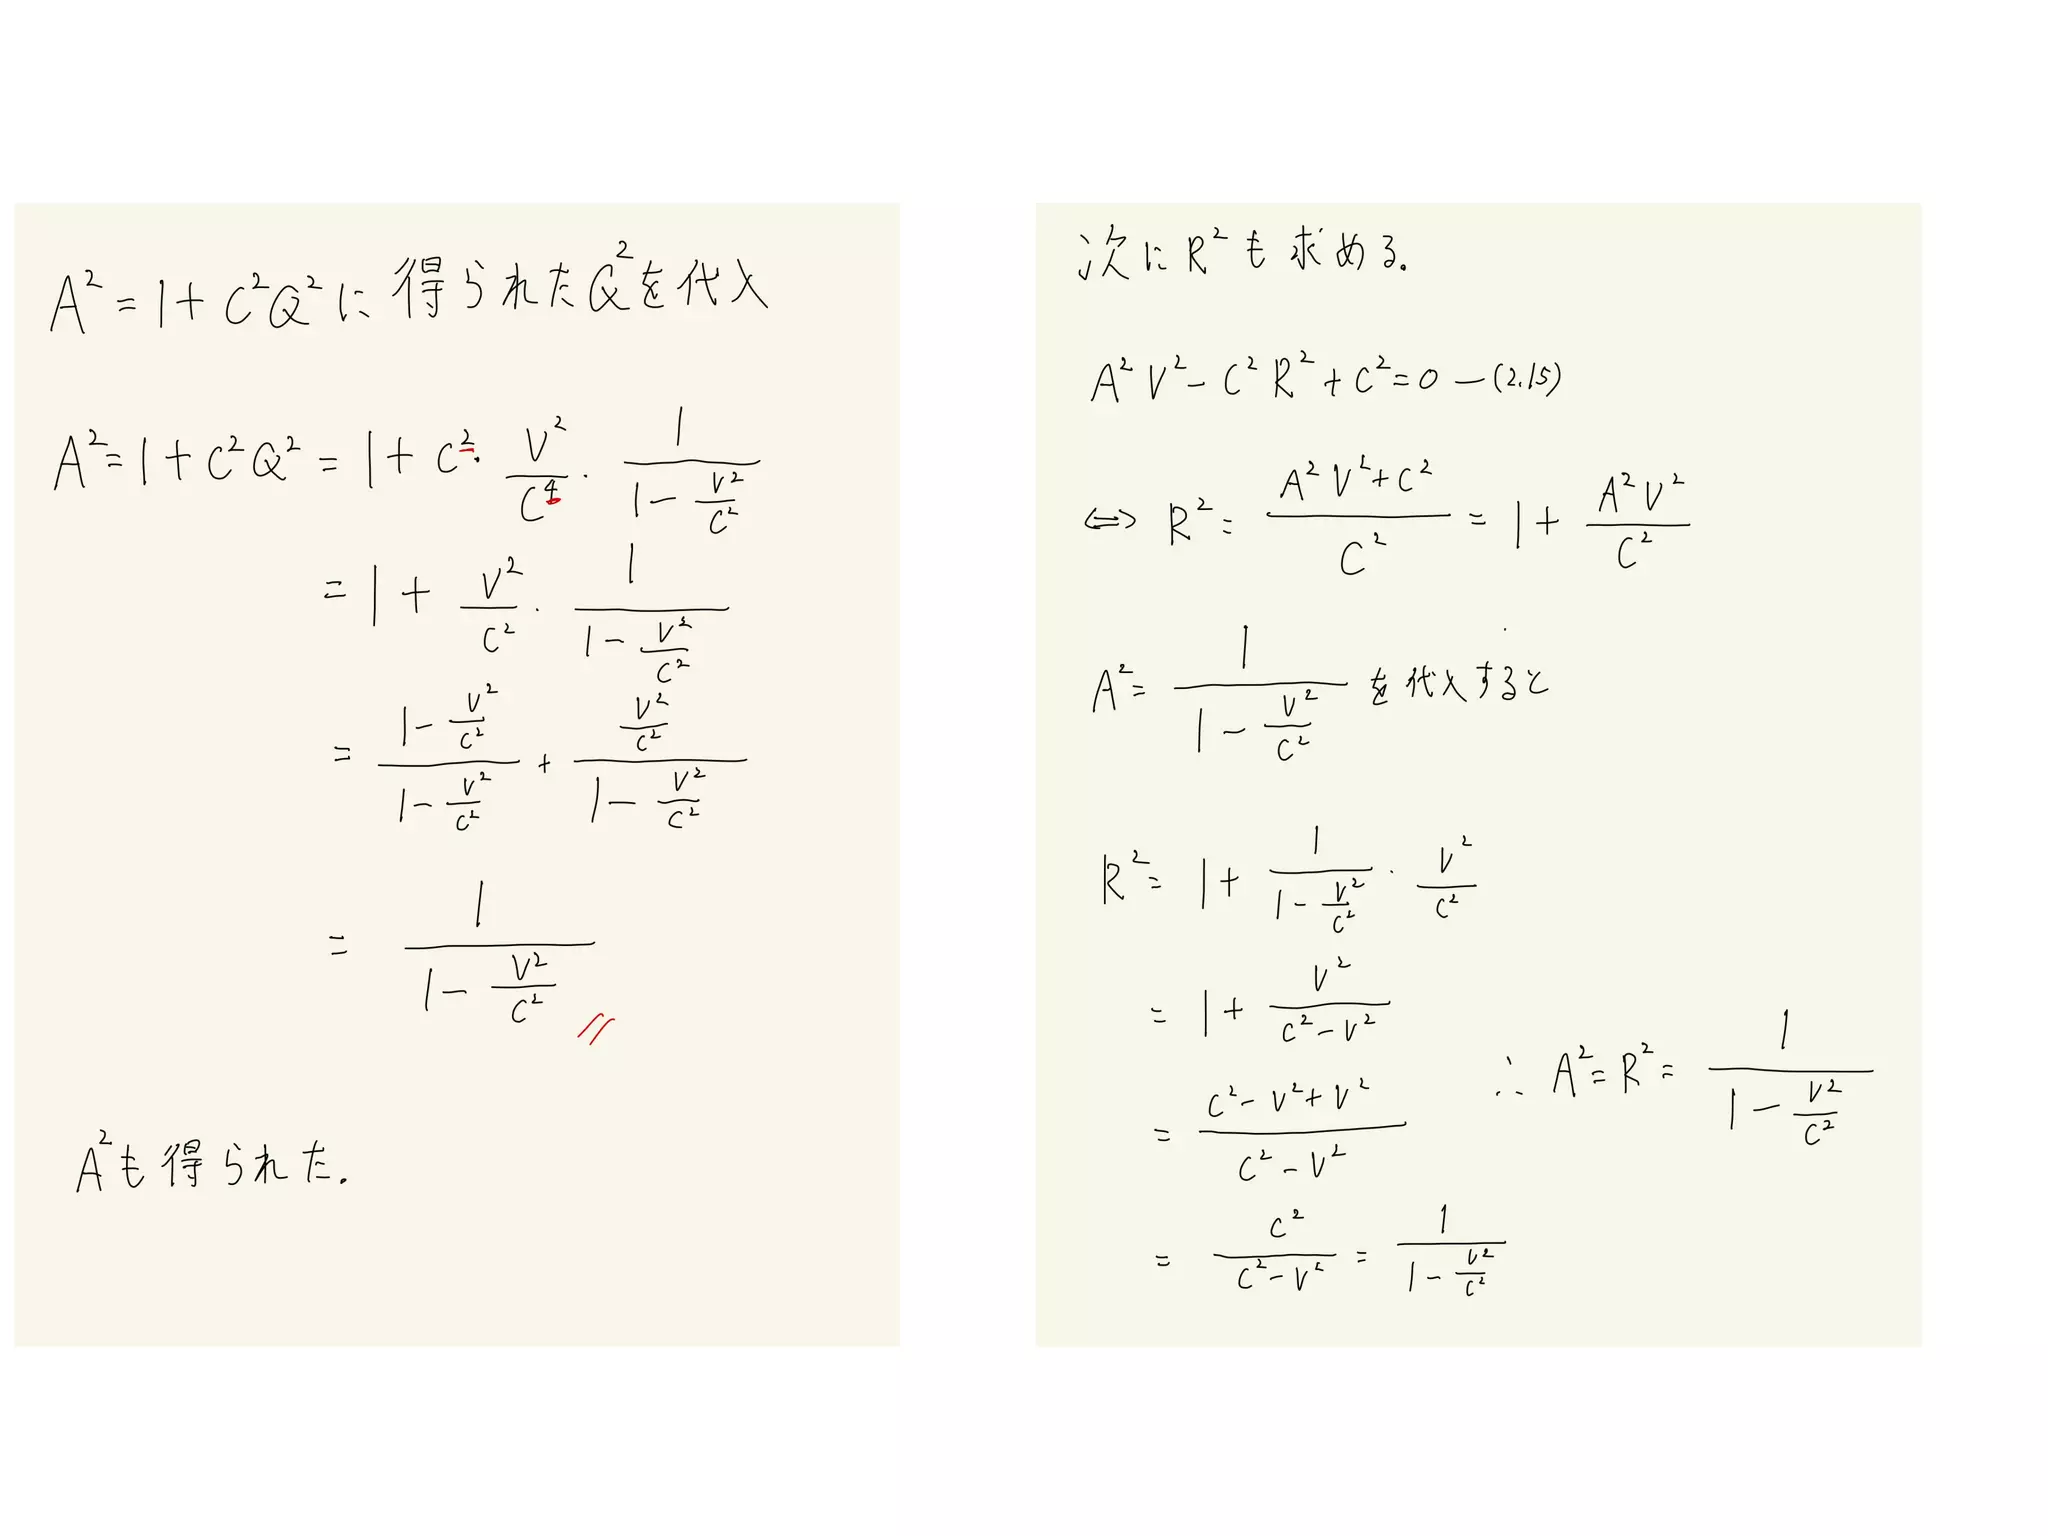 A² = 1 + C²Q² に 得られた Q² を代入
A² = 1 + C²Q² = 1 + C² · V²/C⁴ · 1/(1 - V²/C²)
= 1 + V²/C² · 1/(1 - V²/C²)
= (1 - V²/C²)/(1 - V²/C²) + (V²/C²)/(1 - V²/C²)
= 1/(1 - V²/C²) //
A² も得られた.
次に R² も求める.
A²V² - C²R² + C² = 0 — (2.15)
⇔ R² = (A²V² + C²)/C² = 1 + A²V²/C²
A² = 1/(1 - V²/C²) を代入すると
R² = 1 + 1/(1 - V²/C²) · V²/C²
= 1 + V²/(C² - V²)
= (C² - V² + V²)/(C² - V²)
= C²/(C² - V²) = 1/(1 - V²/C²)
∴ A² = R² = 1/(1 - V²/C²)